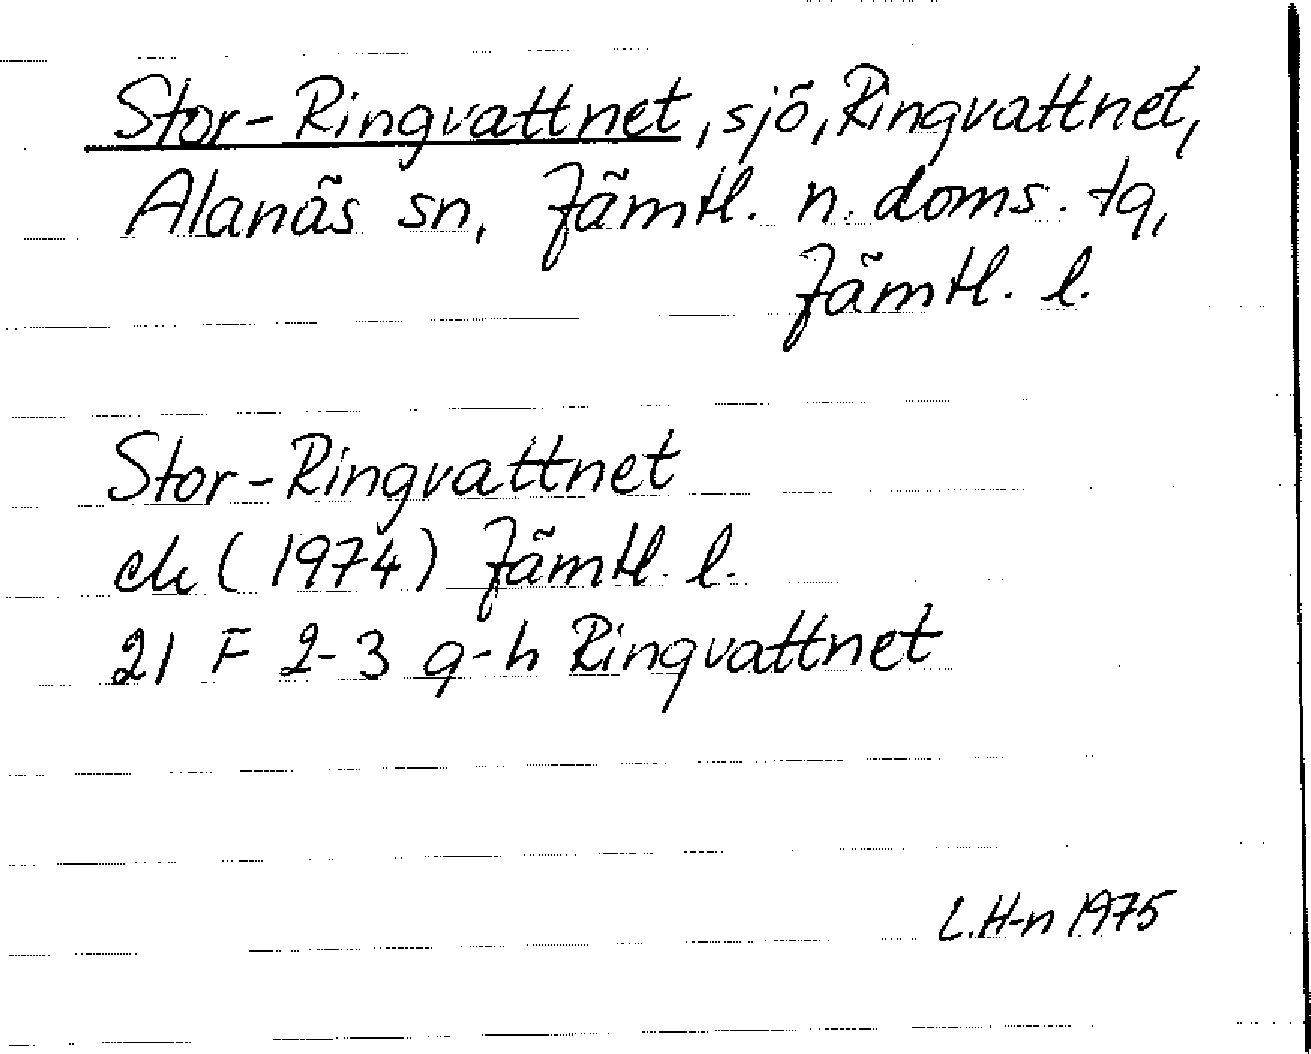 Stor-Ringvattnet, sjö, Ringvattnet,
Alanäs sn, Jämtl. n. doms. tg,
Jämtl. l.
Stor-Ringvattnet
ek (1974) Jämtl. l.
21 F 2-3 g-h Ringvattnet
L.H-n 1975